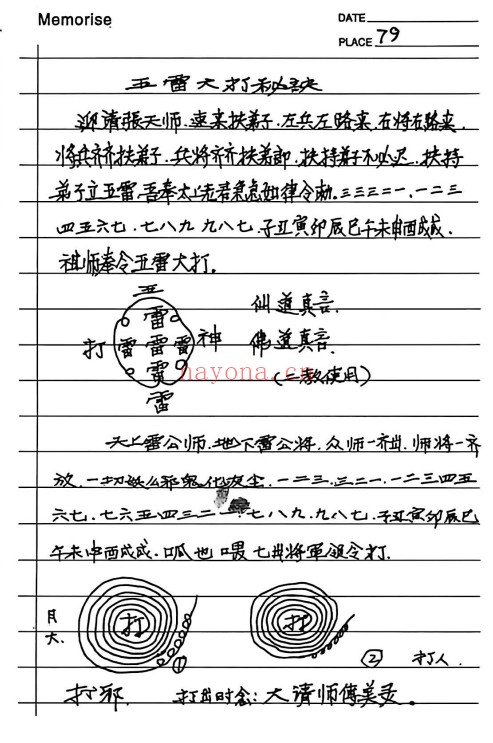 Memorise
DATE
PLACE 79
五雷大打秘訣
迎请張天师.速来扶弟子.左兵左路来.右将右路来.
将兵齐齐扶弟子.兵将齐齐扶弟郎.扶持弟子不必迟.扶持
弟子立五雷.吾奉太上老君急急如律令勅.三三三二一.一二三
四五六七.七八九九八七.子丑寅卯辰巳午未申酉戌.
祖师奉令五雷大打。
五
雷
打 雷雷雷 神
雷
雷
仙道真言.
佛道真言.
(二教使用)
nayona.cn
天上雷公师.地下雷公将.众师一齐出.师将一齐
放.一切妖么邪鬼化灰尘.一二三.三二一.一二三四五
六七.七六五四三二一.七八九.九八七.子丑寅卯辰巳
午未申酉戌.呱也喂七丑将軍领令打.
打
打
月
大.
①
② 打人.
打邪. 打出时念:大请师傅美灵。